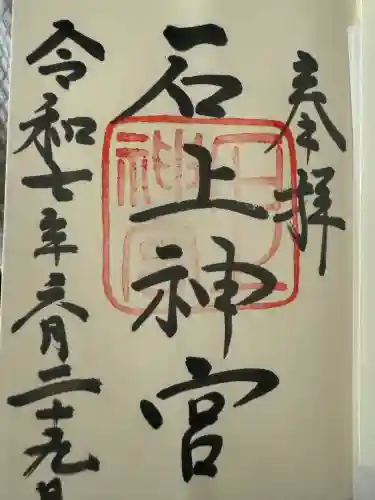 奉拝
石上神宮
令和七年六月二十九日